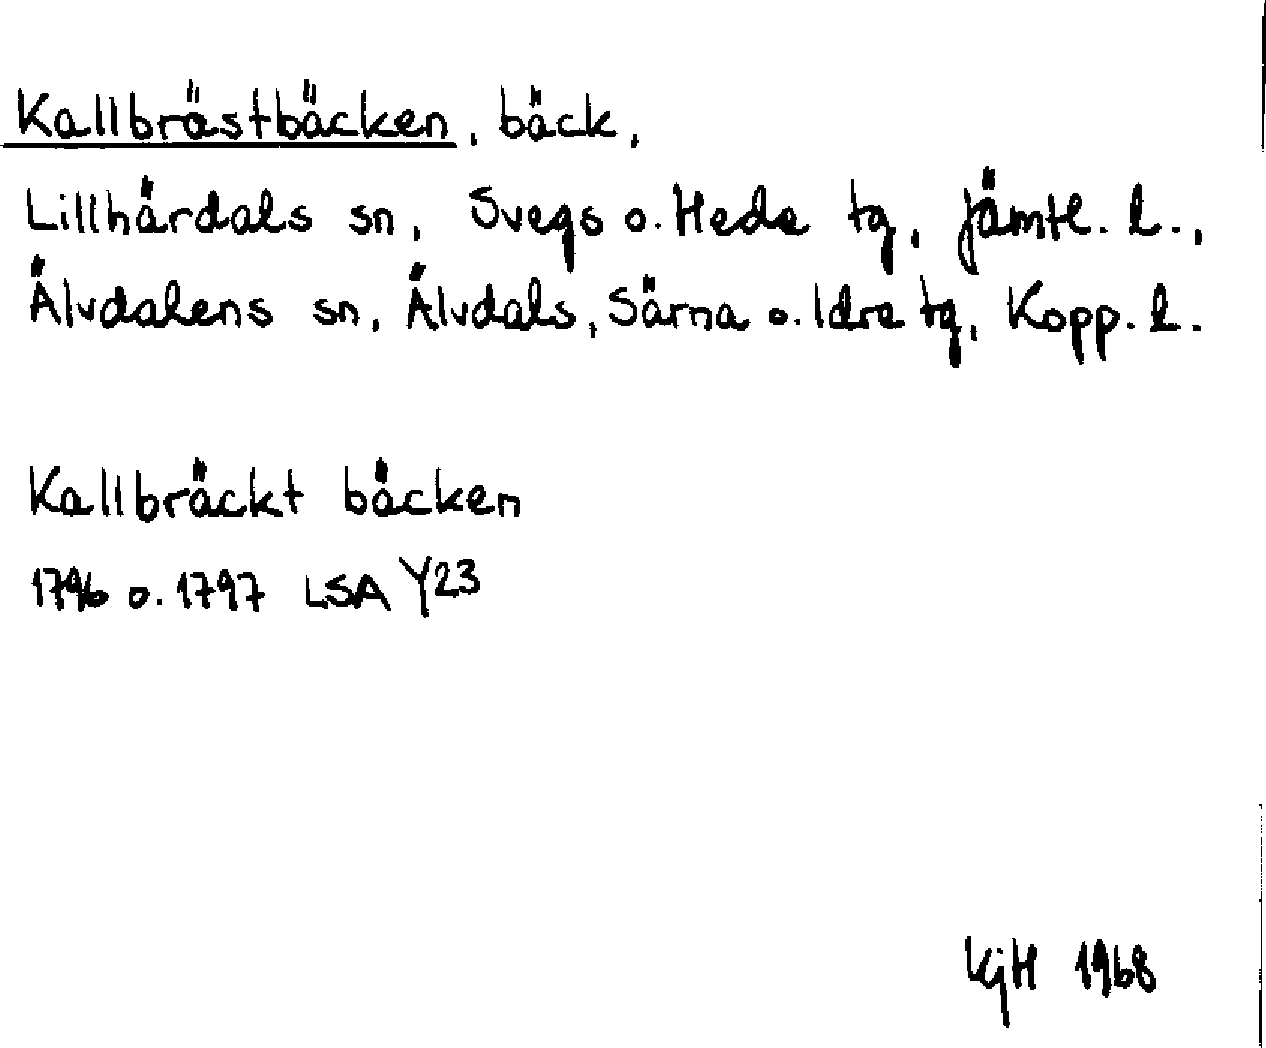 Kallbrästbäcken, bäck,
Lillhärdals sn, Svegs o. Hede tg, Jämtl. l.,
Älvdalens sn, Älvdals, Särna o. Idre tg, Kopp. l.
Kallbräckt bäcken
1796 o. 1797 LSA Y23
KjH 1968